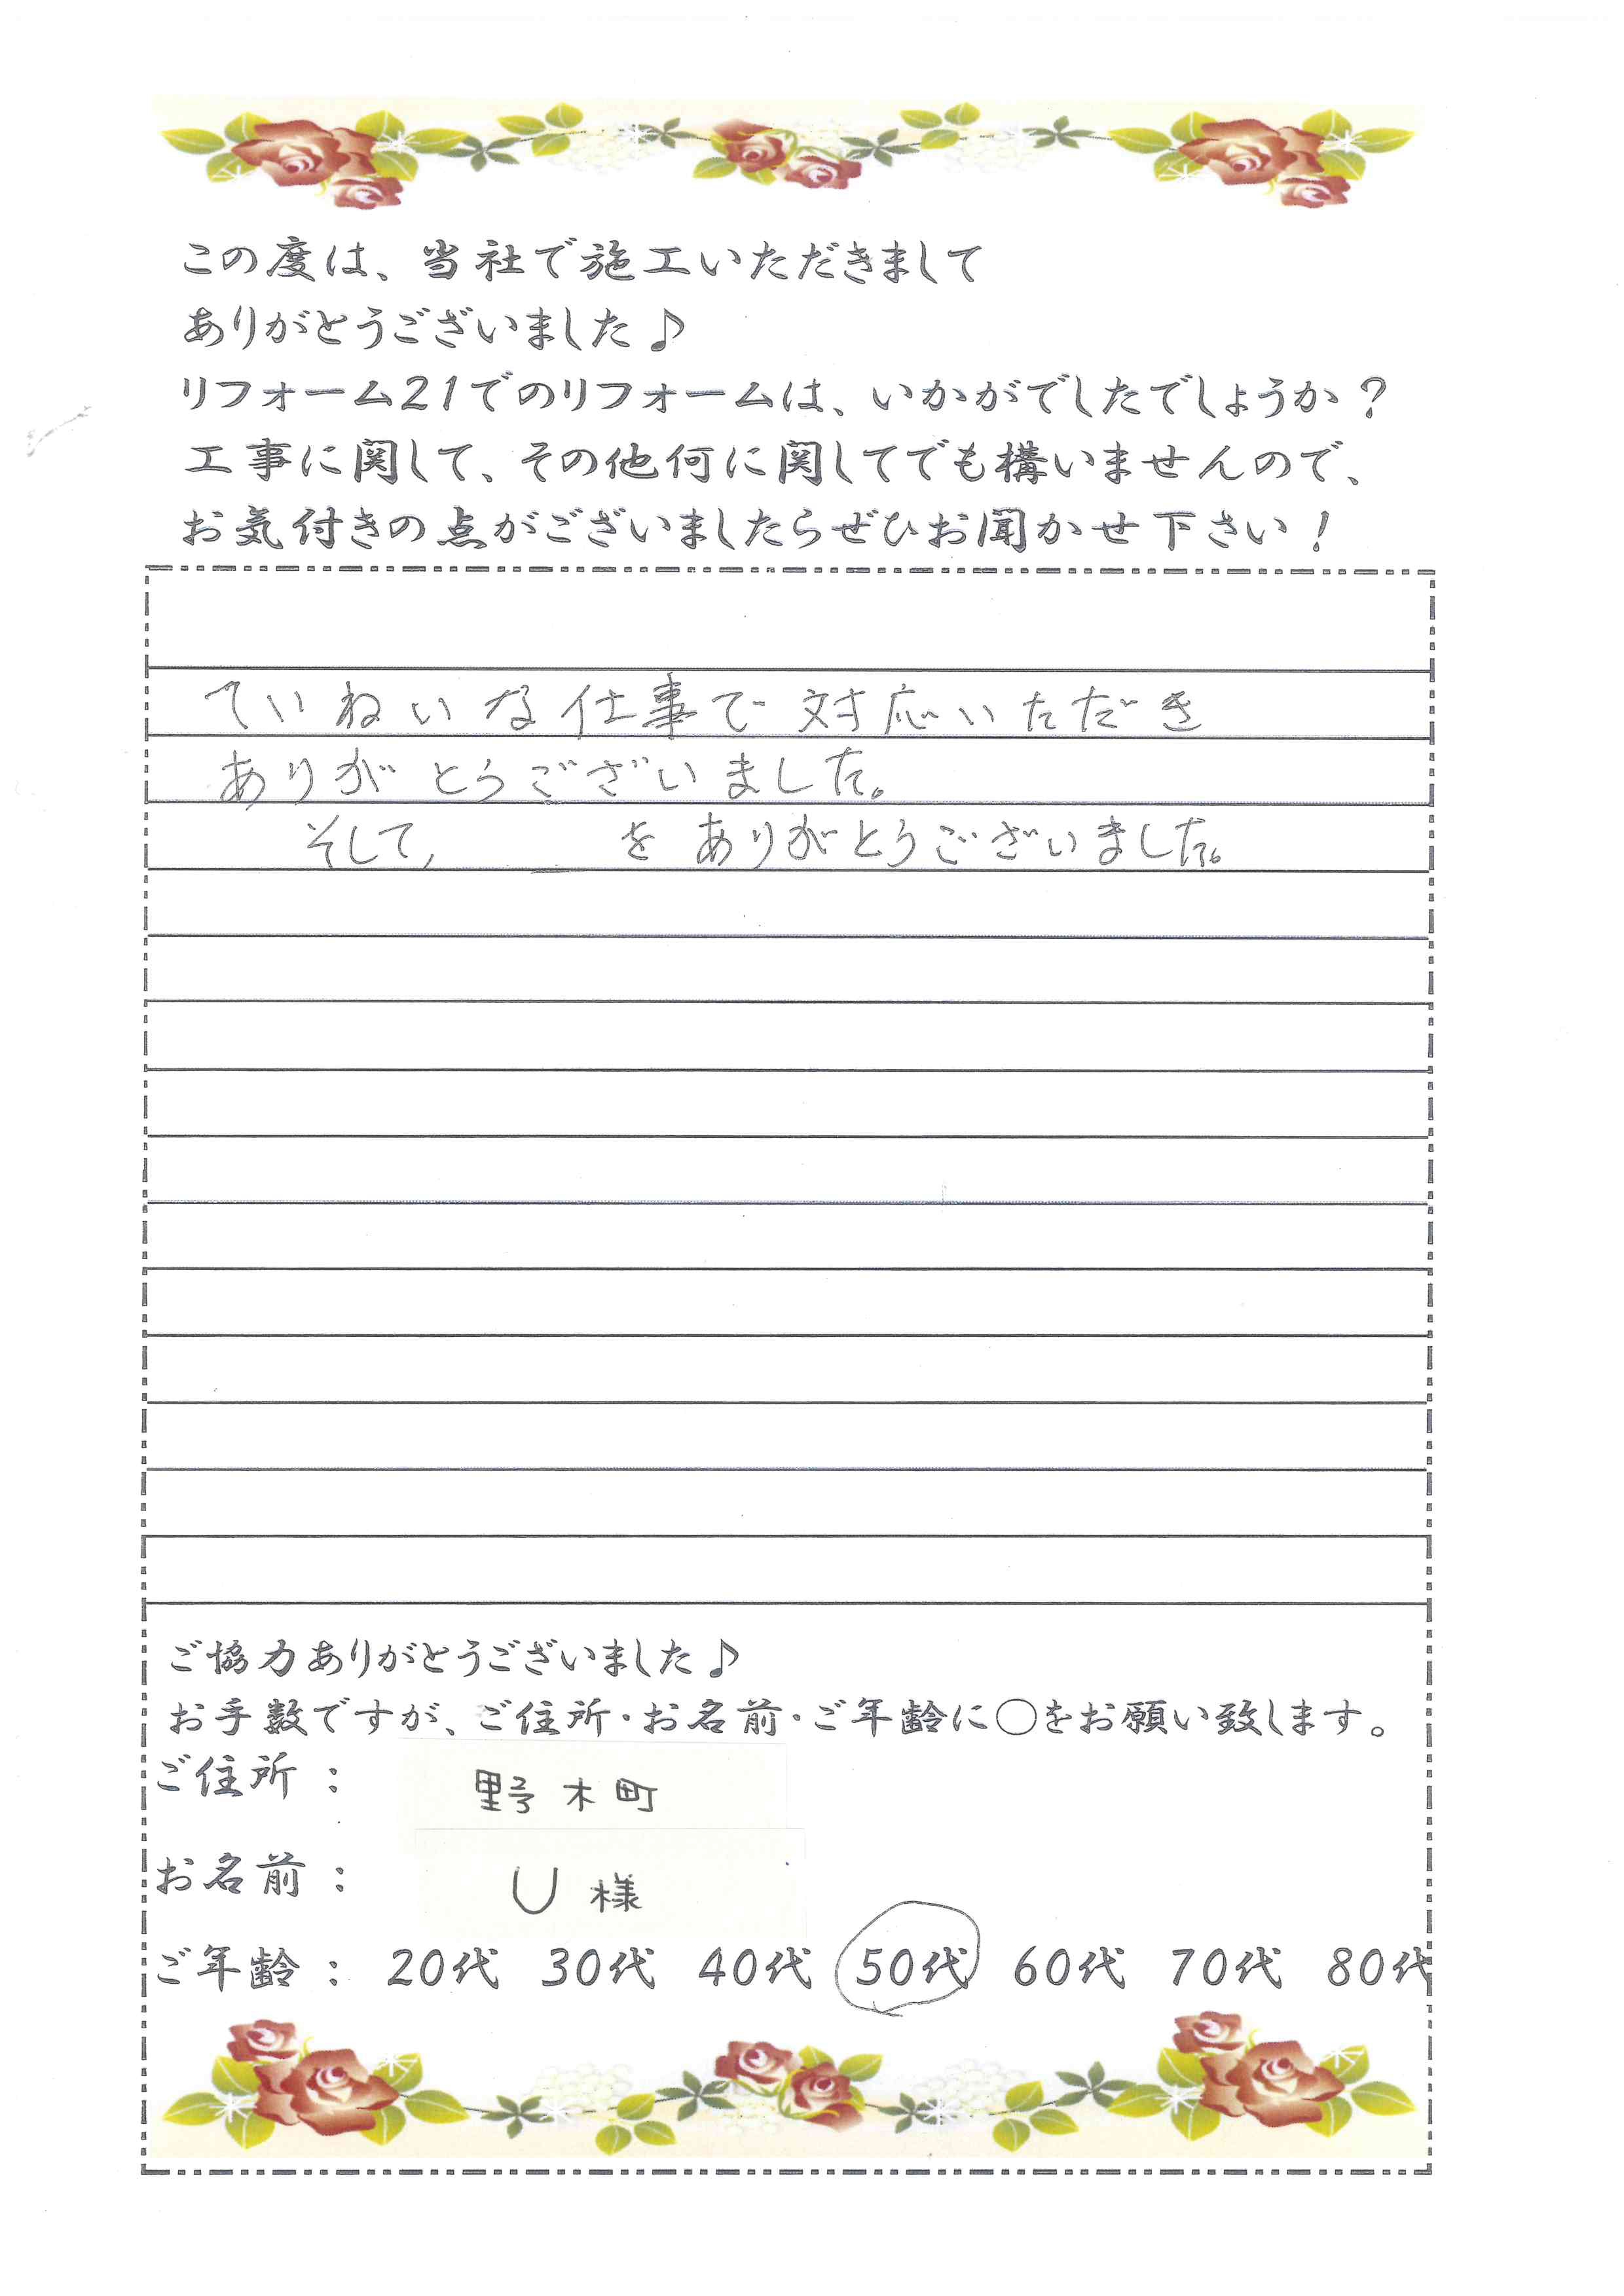 この度は、当社で施工いただきまして
ありがとうございました♪
リフォーム21でのリフォームは、いかがでしたでしょうか？
工事に関して、その他何に関してでも構いませんので、
お気付きの点がございましたらぜひお聞かせ下さい！
ていねいな仕事で対応いただき
ありがとうございました。
そして、 を ありがとうございました。
ご協力ありがとうございました♪
お手数ですが、ご住所・お名前・ご年齢に○をお願い致します。
ご住所： 野木町
お名前： U様
ご年齢： 20代 30代 40代 50代 60代 70代 80代